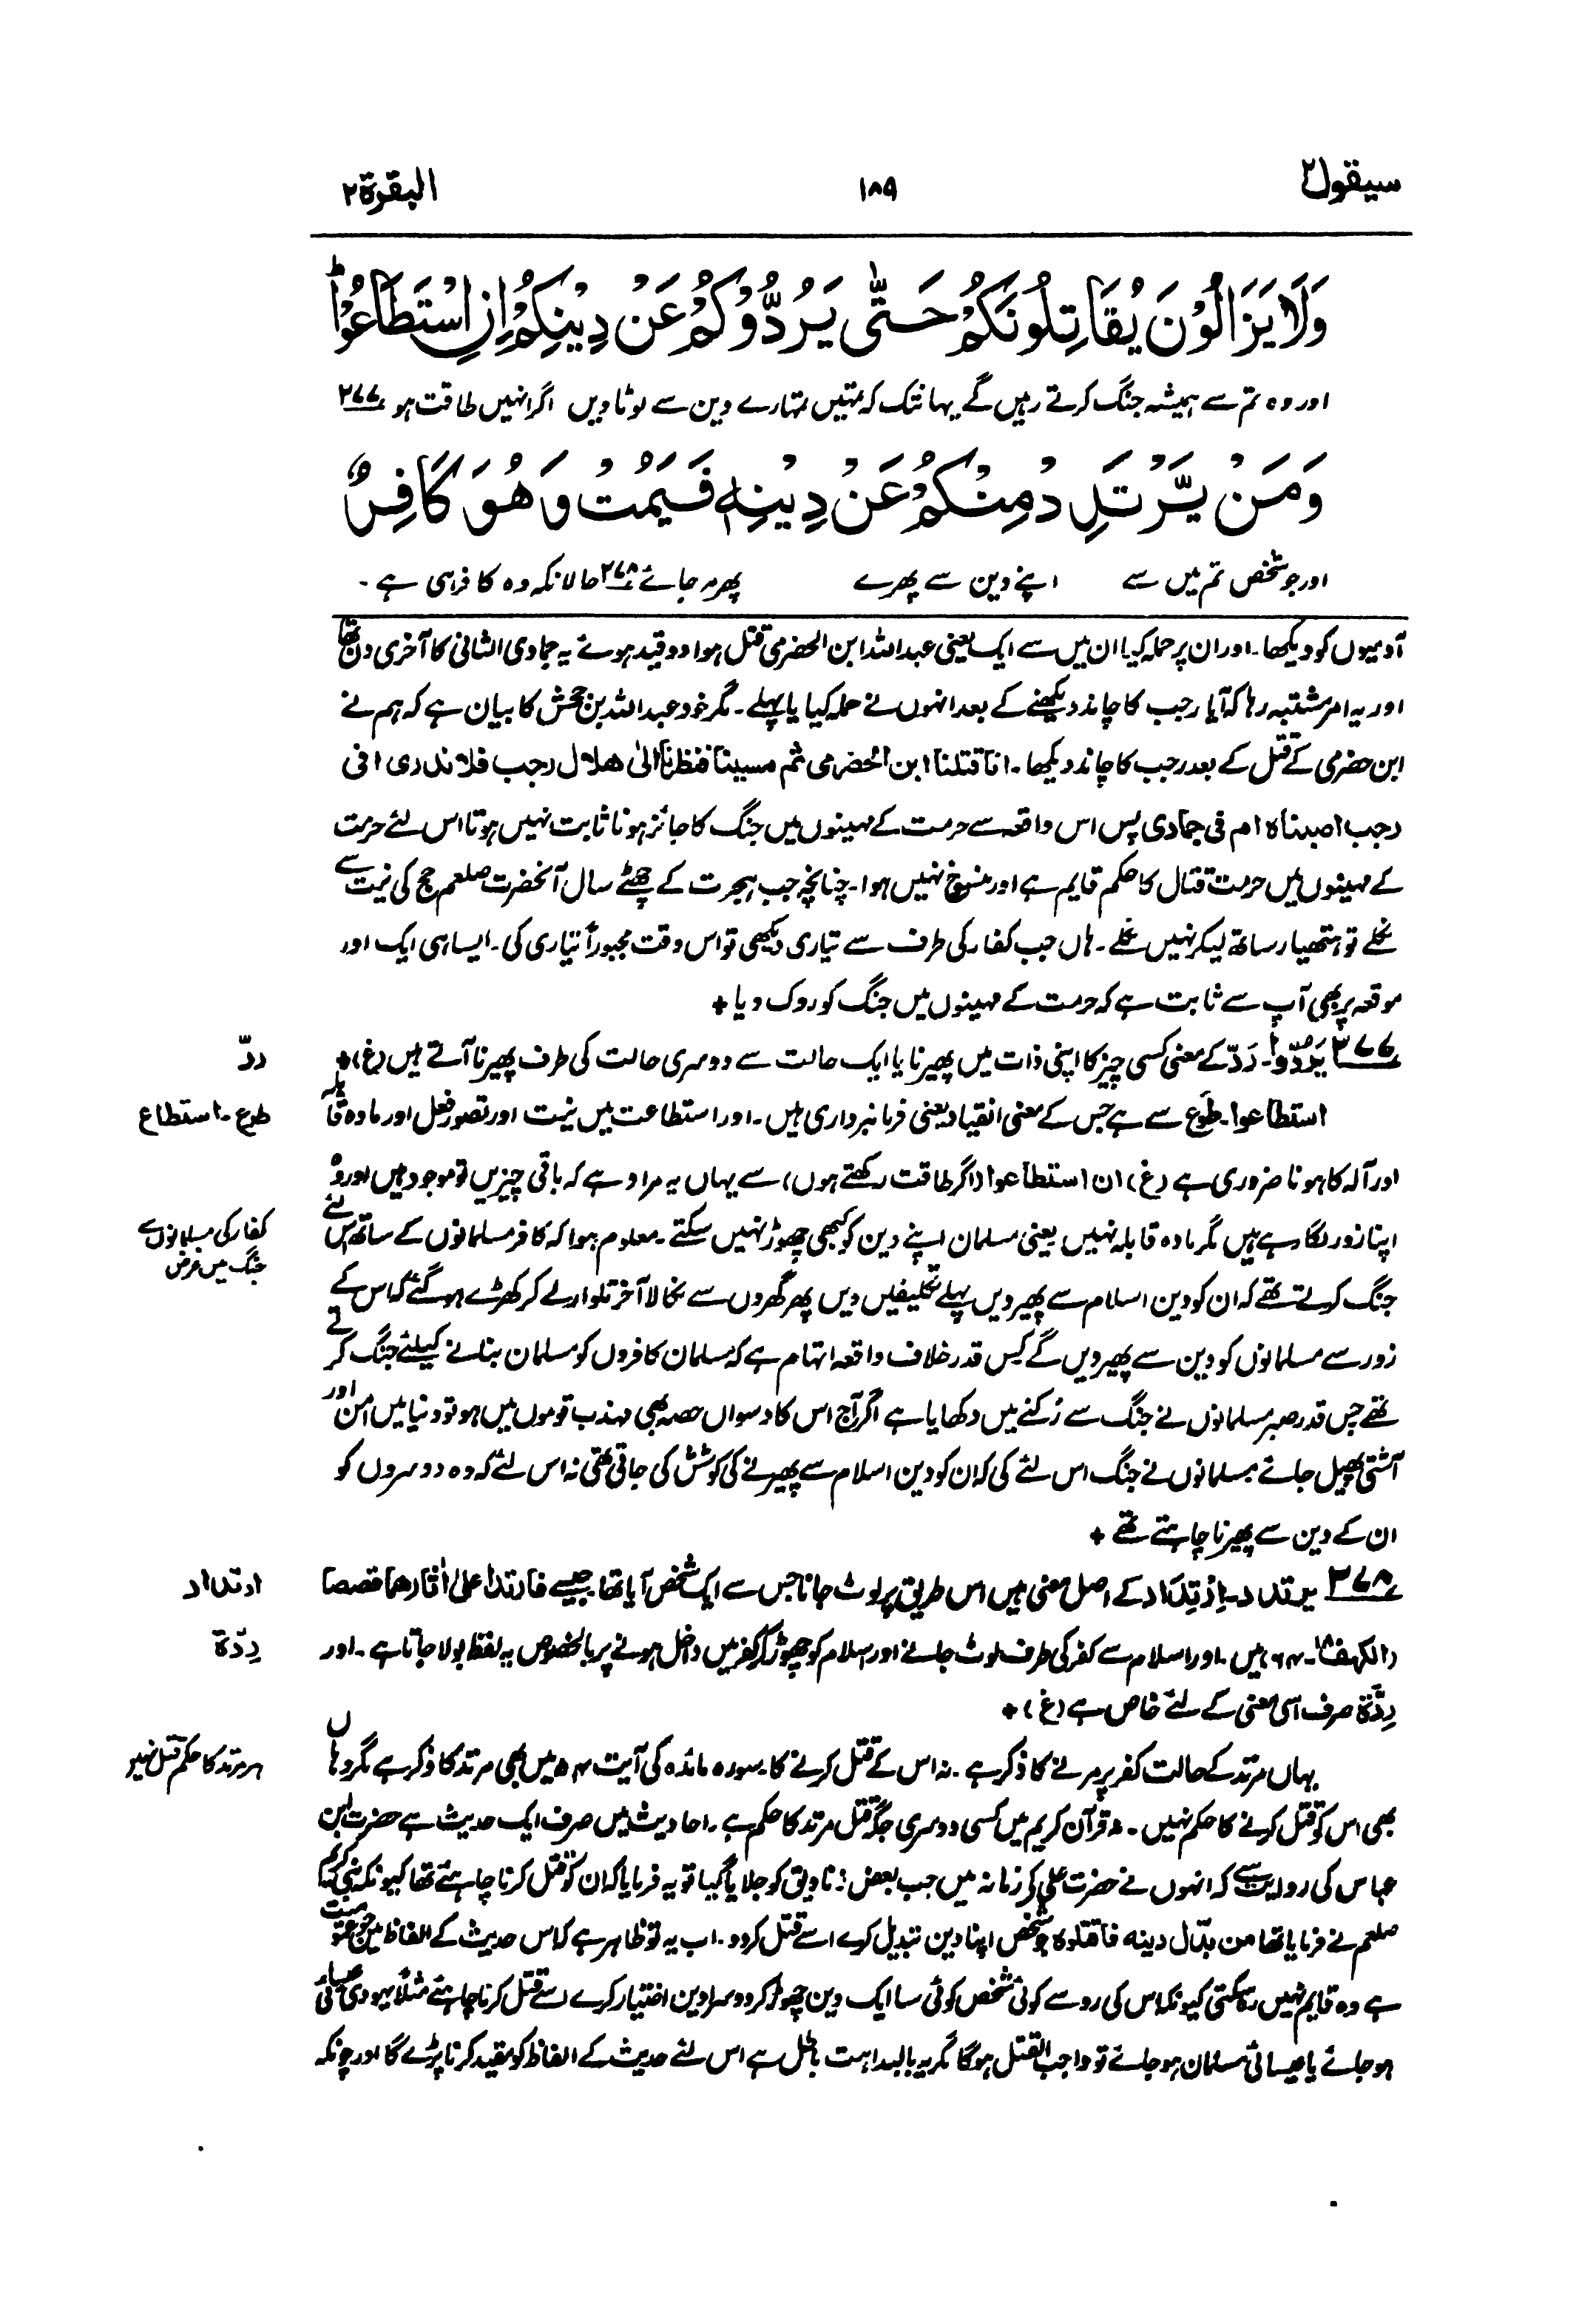 سیقول ۲
۱۸۹
البقرة ۲
وَلَا يَزَالُوْنَ يُقَاتِلُوْنَكُمْ حَتّٰى يَرُدُّوْكُمْ عَنْ دِيْنِكُمْ اِنِ اسْتَطَاعُوْا ؕ
اور وہ تم سے ہمیشہ جنگ کرتے رہیں گے یہانتک کہ تمہیں تمہارے دین سے لوٹا دیں اگر انہیں طاقت ہو ۲۷۷
وَمَنْ يَّرْتَدِدْ مِنْكُمْ عَنْ دِيْنِهٖ فَيَمُتْ وَهُوَ كَافِرٌ
اور جو شخص تم میں سے اپنے دین سے پھرے پھر مر جائے ۲۷۸ حالانکہ وہ کافر ہی ہے ۔
آدمیوں کو دیکھا۔ اور ان پر حملہ کیا ان میں سے ایک یعنی عبداللہ ابن الحضرمی قتل ہوا دو قید ہوئے یہ جمادی الثانی کا آخری دن تھا
اور یہ امر مشتبہ رہا کہ آیا رجب کا چاند دیکھنے کے بعد انہوں نے حملہ کیا یا پہلے۔ مگر خود عبداللہ بن جحش کا بیان ہے کہ ہم نے
ابن حضرمی کے قتل کے بعد رجب کا چاند دیکھا۔ انا قتلنا ابن الحضرمی ثم مسینا فنظرنا الیٰ ھلال رجب فلا ندری افی
رجب اصبناہ ام فی جمادی پس اس واقعہ سے حرمت کے مہینوں میں جنگ کا جائز ہونا ثابت نہیں ہوتا اس لئے حرمت
کے مہینوں میں حرمت قتال کا حکم قایم ہے اور منسوخ نہیں ہوا۔ چنانچہ جب ہجرت کے چھٹے سال آنحضرت صلعم حج کی نیت سے
نکلے تو ہتھیار ساتھ لیکر نہیں نکلے۔ ہاں جب کفار کی طرف سے تیاری دیکھی تو اس وقت مجبوراً تیاری کی۔ ایسا ہی ایک اور
موقعہ پر بھی آپ سے ثابت ہے کہ حرمت کے مہینوں میں جنگ کو روک دیا +
۲۷۷ یَرُدُّوا۔ رَدّ کے معنی کسی چیز کا اپنی ذات میں پھیرنا یا ایک حالت سے دوسری حالت کی طرف پھیرنا آتے ہیں (غ) +
ردّ
استطاعوا۔ طَوع سے ہے جس کے معنی انقیاد یعنی فرمانبرداری ہیں۔ اور استطاعت میں نیت اور تصور فعل اور مادہ قابلہ
طوع۔ استطاع
اور آلہ کا ہونا ضروری ہے (غ) ان استطاعوا (اگر طاقت رکھتے ہوں) سے یہاں یہ مراد ہے کہ باقی چیزیں تو موجود ہیں اور وہ
اپنا زور لگا رہے ہیں مگر مادہ قابلہ نہیں یعنی مسلمان اپنے دین کو کبھی چھوڑ نہیں سکتے۔ معلوم ہوا کہ کافر مسلمانوں کے ساتھ اس لئے
کفار کی مسلمانوں سے
جنگ میں غرض
جنگ کرتے تھے کہ ان کو دین اسلام سے پھیر دیں پہلے تکلیفیں دیں پھر گھروں سے نکالا آخر تلوار لے کر کھڑے ہو گئے کہ اس کے
زور سے مسلمانوں کو دین سے پھیر دیں گے کیس قدر خلاف واقعہ اتہام ہے کہ مسلمان کافروں کو مسلمان بنانے کیلئے جنگ کرتے
تھے جس قدر صبر مسلمانوں نے جنگ سے رُکنے میں دکھایا ہے اگر آج اس کا دسواں حصہ بھی مہذب قوموں میں ہو تو دنیا میں امن اور
آشتی پھیل جائے مسلمانوں نے جنگ اس لئے کی کہ ان کو دین اسلام سے پھیرنے کی کوشش کی جاتی تھی نہ اس لئے کہ وہ دوسروں کو
ان کے دین سے پھیرنا چاہتے تھے +
۲۷۸ یرتدد۔ اِرْتِدَاد کے اصل معنی ہیں اس طریق پر لوٹ جانا جس سے ایک شخص آیا تھا جیسے فارتدا علیٰ اٰثارھما قصصا
ارتداد
(الکہف ۱۸۔ ۶۴) میں۔ اور اسلام سے کفر کی طرف لوٹ جانے اور اسلام کو چھوڑ کر کفر میں داخل ہونے پر بالخصوص یہ لفظ بولا جاتا ہے۔ اور
رِدّة
رِدَّة صرف اسی معنی کے لئے خاص ہے (غ) +
یہاں مرتد کے حالت کفر پر مرنے کا ذکر ہے۔ نہ اس کے قتل کرنے کا۔ سورہ مائدہ کی آیت ۵۴ میں بھی مرتد کا ذکر ہے مگر وہاں
ہر مرتد کا حکم قتل نہیں
بھی اس کو قتل کرنے کا حکم نہیں۔ نہ قرآن کریم میں کسی دوسری جگہ قتل مرتد کا حکم ہے۔ احادیث میں صرف ایک حدیث ہے حضرت ابن
عباس کی روایت سے کہ انہوں نے حضرت علی کے زمانہ میں جب بعض زنادیق کو جلایا گیا تو یہ فرمایا کہ ان کو قتل کرنا چاہئے تھا کیونکہ نبی کریم
صلعم نے فرمایا تھا من بدّل دینہ فاقتلوہ جو شخص اپنا دین تبدیل کرے اسے قتل کر دو۔ اب یہ تو ظاہر ہے کہ اس حدیث کے الفاظ میں جو عمومیت
ہے وہ قایم نہیں رہ سکتی کیونکہ اس کی رو سے کوئی شخص کوئی سا ایک دین چھوڑ کر دوسرا دین اختیار کرے اسے قتل کرنا چاہئے مثلاً یہودی عیسائی
ہو جائے یا عیسائی مسلمان ہو جائے تو واجب القتل ہوگا مگر یہ بالبداہت باطل ہے اس لئے حدیث کے الفاظ کو مقید کرنا پڑے گا اور چونکہ